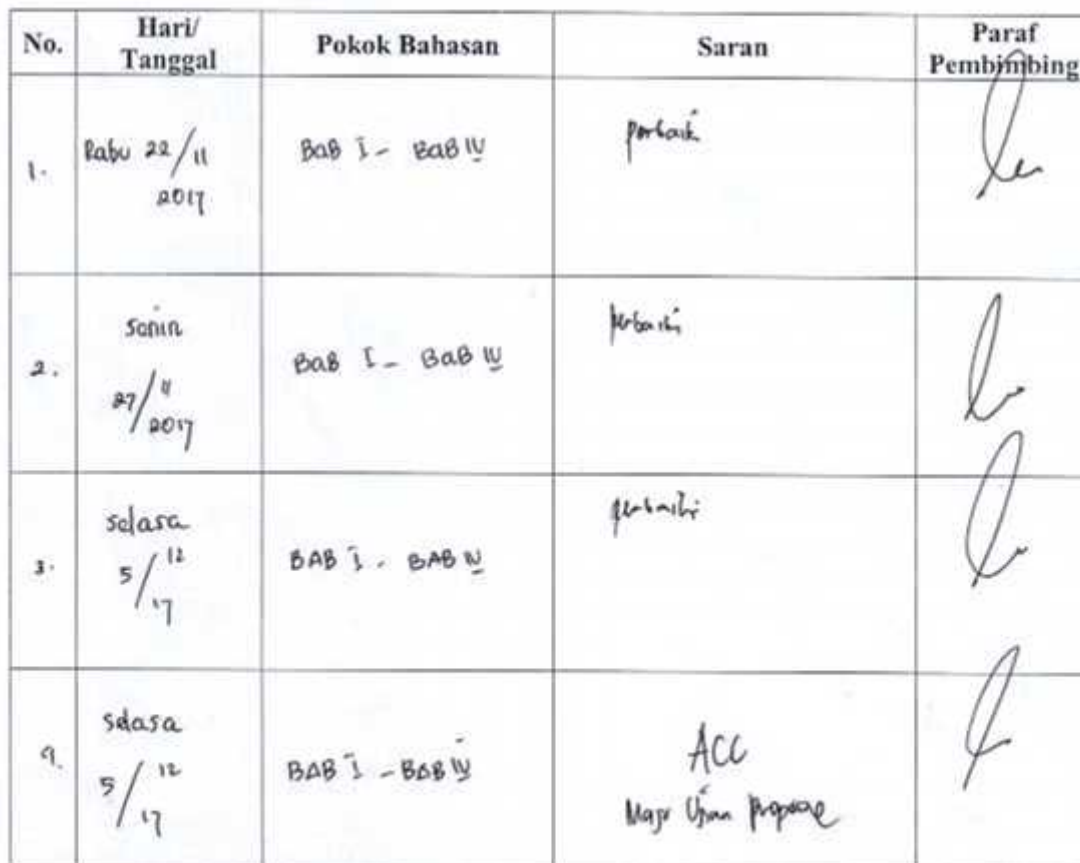 No. Hari/ Tanggal Pokok Bahasan Saran Paraf Pembimbing
1. Rabu 22/11 2017 BAB I - BAB IV perbaiki
2. Senin 27/11 2017 BAB I - BAB IV perbaiki
3. Selasa 5/12 17 BAB I - BAB IV perbaiki
4. Selasa 5/12 17 BAB I - BAB IV ACC
Maju Ujian Proposal